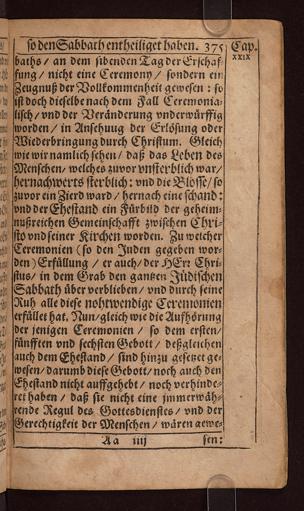 so den Sabbath entheiliget haben. 375
Cap.
XXIX
baths / an dem sibenden Tag der Erschaf-
fung / nicht eine Ceremony / sondern ein
Zeugnuß der Vollkommenheit gewesen: so
ist doch dieselbe nach dem Fall Ceremonia-
lisch / vnd der Veränderung vnderwürffig
worden / in Ansehuug der Erlösung oder
Wiederbringung durch Christum. Gleich
wie wir namlich sehen / daß das Leben des
Menschen / welches zuvor vnsterblich war /
hernachwerts sterblich: vnd die Blösse / so
zuvor ein Zierd ward / hernach eine schand:
vnd der Ehestand ein Fürbild der geheim-
nußreichen Gemeinschafft zwischen Chri-
sto vnd seiner Kirchen worden. Zu welcher
Ceremonien (so den Juden gegeben wor-
den) Erfüllung / er auch / der HErr Chri-
stus / in dem Grab den gantzen Jüdischen
Sabbath über verblieben / vnd durch seine
Ruh alle diese nohtwendige Ceremonien
erfüllet hat. Nun / gleich wie die Aufhörung
der jenigen Ceremonien / so dem ersten /
fünfften vnd sechsten Gebott / deßgleichen
auch dem Ehestand / sind hinzu gesetzet ge-
wesen / darumb diese Gebott / noch auch den
Ehestand nicht auffgehebt / noch verhinde-
ret haben / daß sie nicht eine jmmerwäh-
rende Regul des Gottesdienstes / vnd der
Gerechtigkeit der Menschen / wären gewe-
Aa iiij
sen: